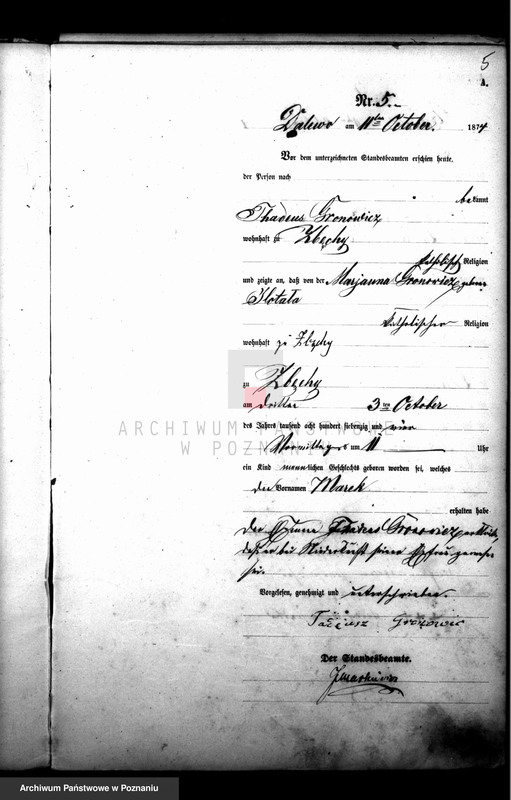 5
A.
Nr. 5.
Dalewo am 11ten October. 1874
Vor dem unterzeichneten Standesbeamten erschien heute,
der Person nach
bekannt
Thadeus Gronowicz
wohnhaft zu Zbęchy
katholisch Religion
und zeigte an, daß von der Marjanna Gronowicz geborne
Słotała
katholischer Religion
wohnhaft zu Zbęchy
zu Zbęchy
am dritten 3ten October
des Jahres tausend acht hundert siebenzig und vier
Vormittags um 11 Uhr
ein Kind männlichen Geschlechts geboren worden sei, welches
den Vornamen Marek
erhalten habe
Der Thadeus Gronowicz erklärte,
daß er bei Niederkunft seiner Ehefrau gewesen
sei.
Vorgelesen, genehmigt und unterschrieben.
Tadeusz Gronowic
Der Standesbeamte.
ARCHIWUM PAŃSTWOWE
W POZNANIU
Archiwum Państwowe w Poznaniu